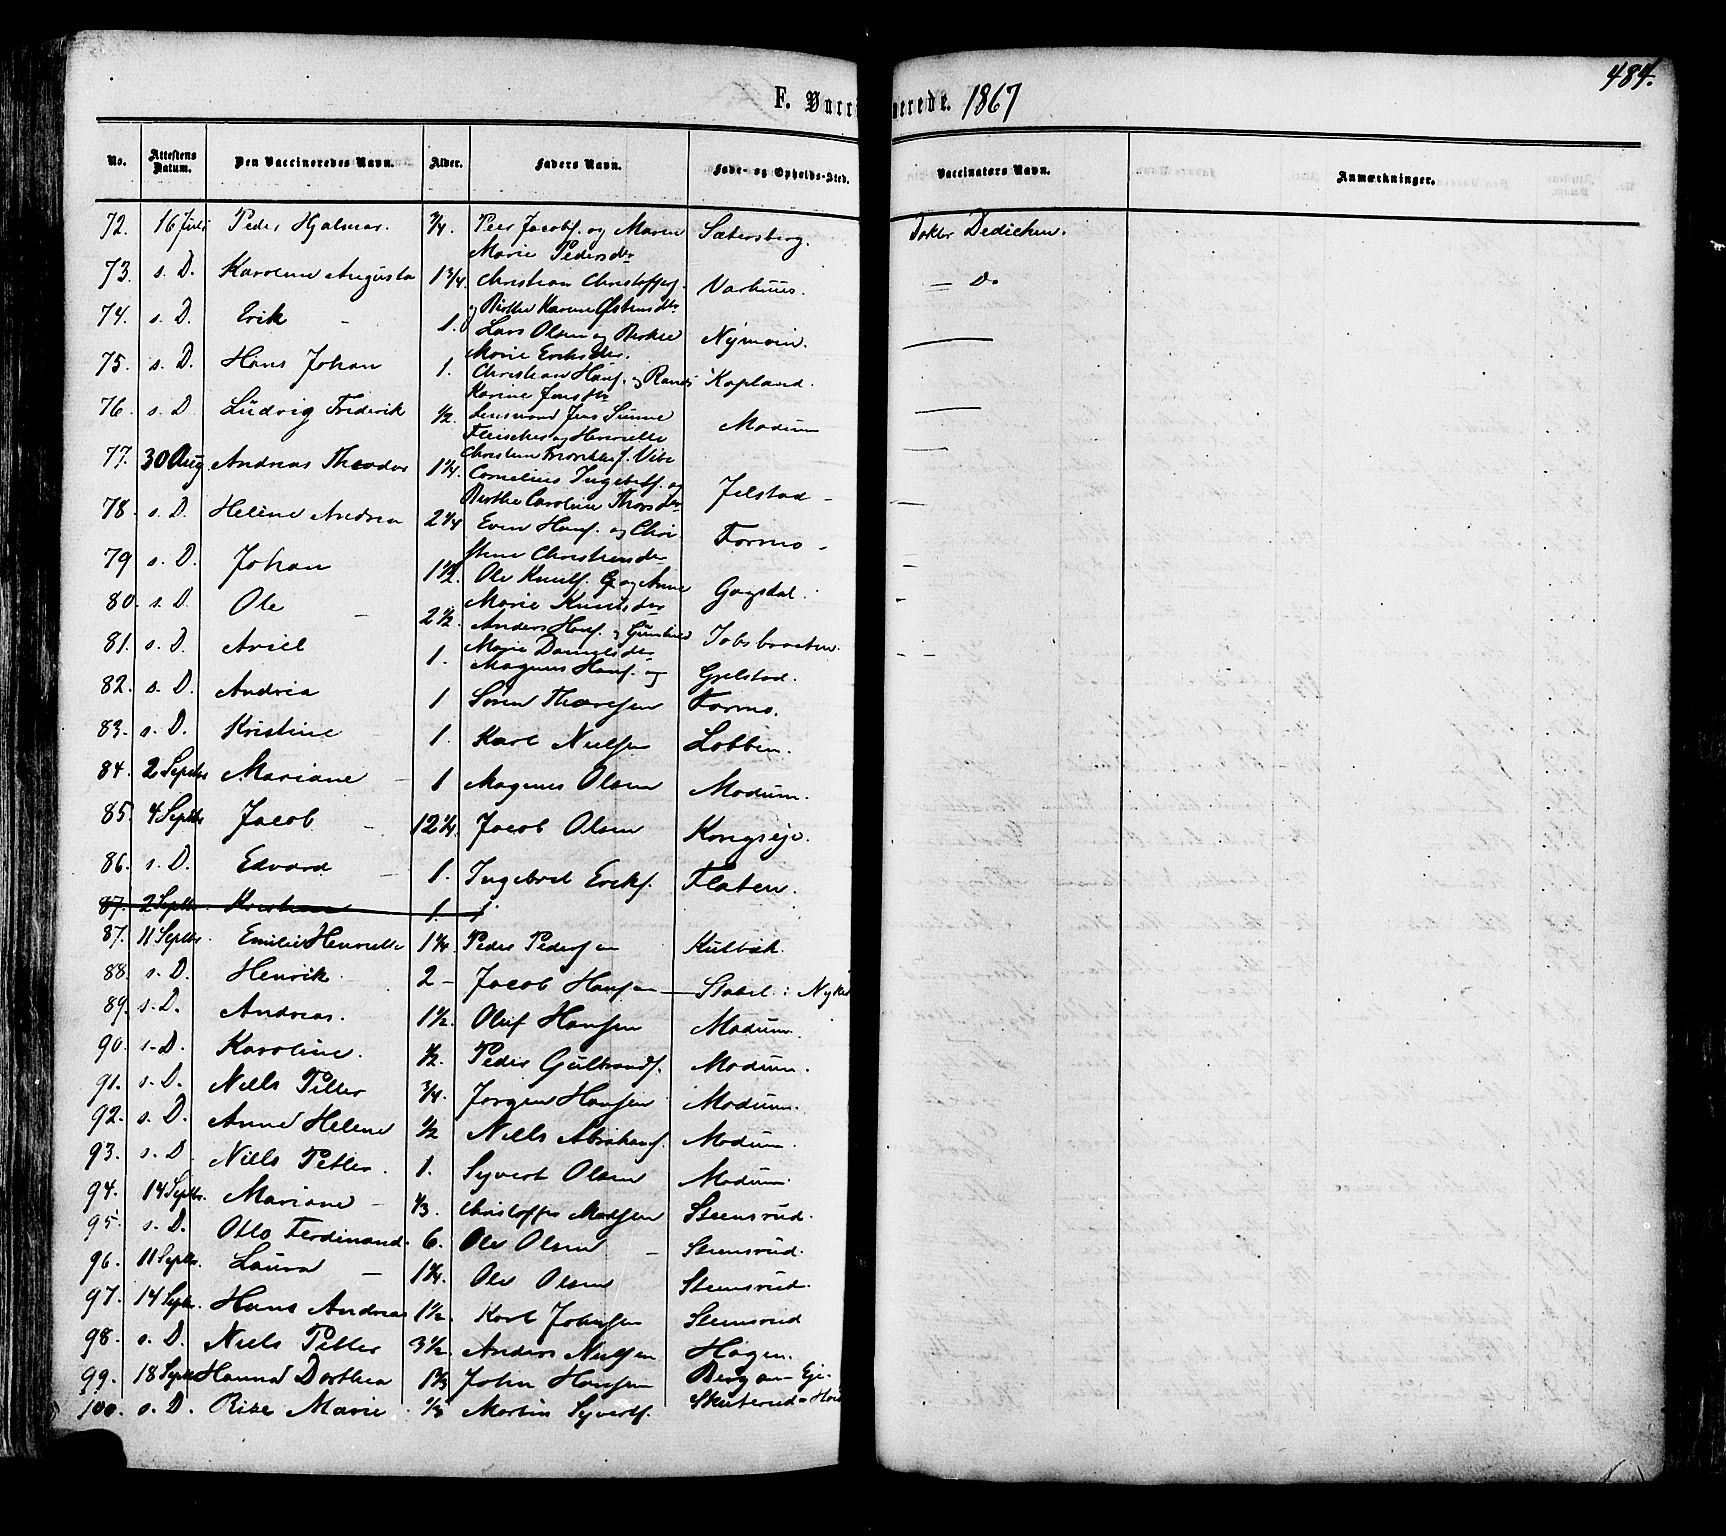 484.
F. Vacci nerede. 1867
No. Attestens Datum. Den Vaccineredes Navn. Alder. Faders Navn. Føde- og Opholds-Sted. Vaccinators Navn. Anmærkninger.
72. 16 Juli Peder Hjalmar. 3/4. Peer Jacobs. og Maren Sætersberg. Doktor Dedichen.
Marie Pedersdr
73. s. D. Karoline Augusta 1 3/4. Christian Christoffers. Varhuus. — Do
og Birthe Karine Østensdr
74. s. D. Erik 1. Lars Olsen og Berthe Nymoen. —
Marie Eriksdr.
75. s. D. Hans Johan 1. Christian Hans. og Randi Kopland.
Karine Jensdr
76. s. D. Ludvig Frederik 1/2. Lensmand Jens Sunne Modum —
Fleischer og Henriette
77. 30 Aug Andreas Theodor 1 1/4. Cornelius Ingebrets. og Jelstad —
Berthe Caroline Thorsdr
78. s. D. Helene Andrea 2 1/4 Even Hans. og Chri Formo —
stine Christiansdr
79 s. D. Johan 1 1/2. Ole Knuts. og Anne
Marie Knutsdr
80. s. D. Ole 2 1/2. Anders Hans. og Gunhild Jobsbraaten.
Marie Danielsdr
81. s. D. 1. Magnus Hans. og Gjelstad.
82. s. D. Andrea 1 Søren Thoresen Formo.
83. s. D. Kristine 1. Karl Nielsen Lobben.
84. 2 Septbr Mariane 1 Magnus Olsen Modum.
85. 4 Septbr Jacob 12 1/4. Jacob Olsen Kongseje.
86. s. D. Edvard 1. Ingebret Eriks. Flaten.
87. 2 Septbr. Kristian 1.
87. 11 Septbr. Emilie Henriette 1 1/4. Peder Pedersen Kulbæk.
88. s. D. Henrik. 2 — Jacob Hansen — Stabel i Nyk
89. s. D. Andreas. 1 1/2. Oluf Hansen Modum.
90. s. D. Karoline. 1/2. Peder Gulbrands. Modum.
91. s. D. Niels Petter 3/4. Jørgen Hansen Modum.
92. s. D. Anne Helene 1/2 Niels Abrahams. Modum.
93. s. D. Niels Petter. 1. Syvert Olsen Modum.
94. 14 Septbr. Mariane 1/3. Christoffer Madsen Steensrud.
95. s. D. Otto Ferdinand. 6. Ole Olsen Steensrud.
96. 11 Septbr. Laura 1 1/4. Ole Olsen Steensrud.
97. 14 Septbr. Hans Andreas 1 1/2. Karl Johnsen Steensrud
98. s. D. Niels Petter 3 1/2. Anders Nielsen Hagen.
99. 18 Septbr Hanna Dorthea John Hansen Bergan Eje
100. s. D. Marie 1/3 Martin Syverts. Skuterud